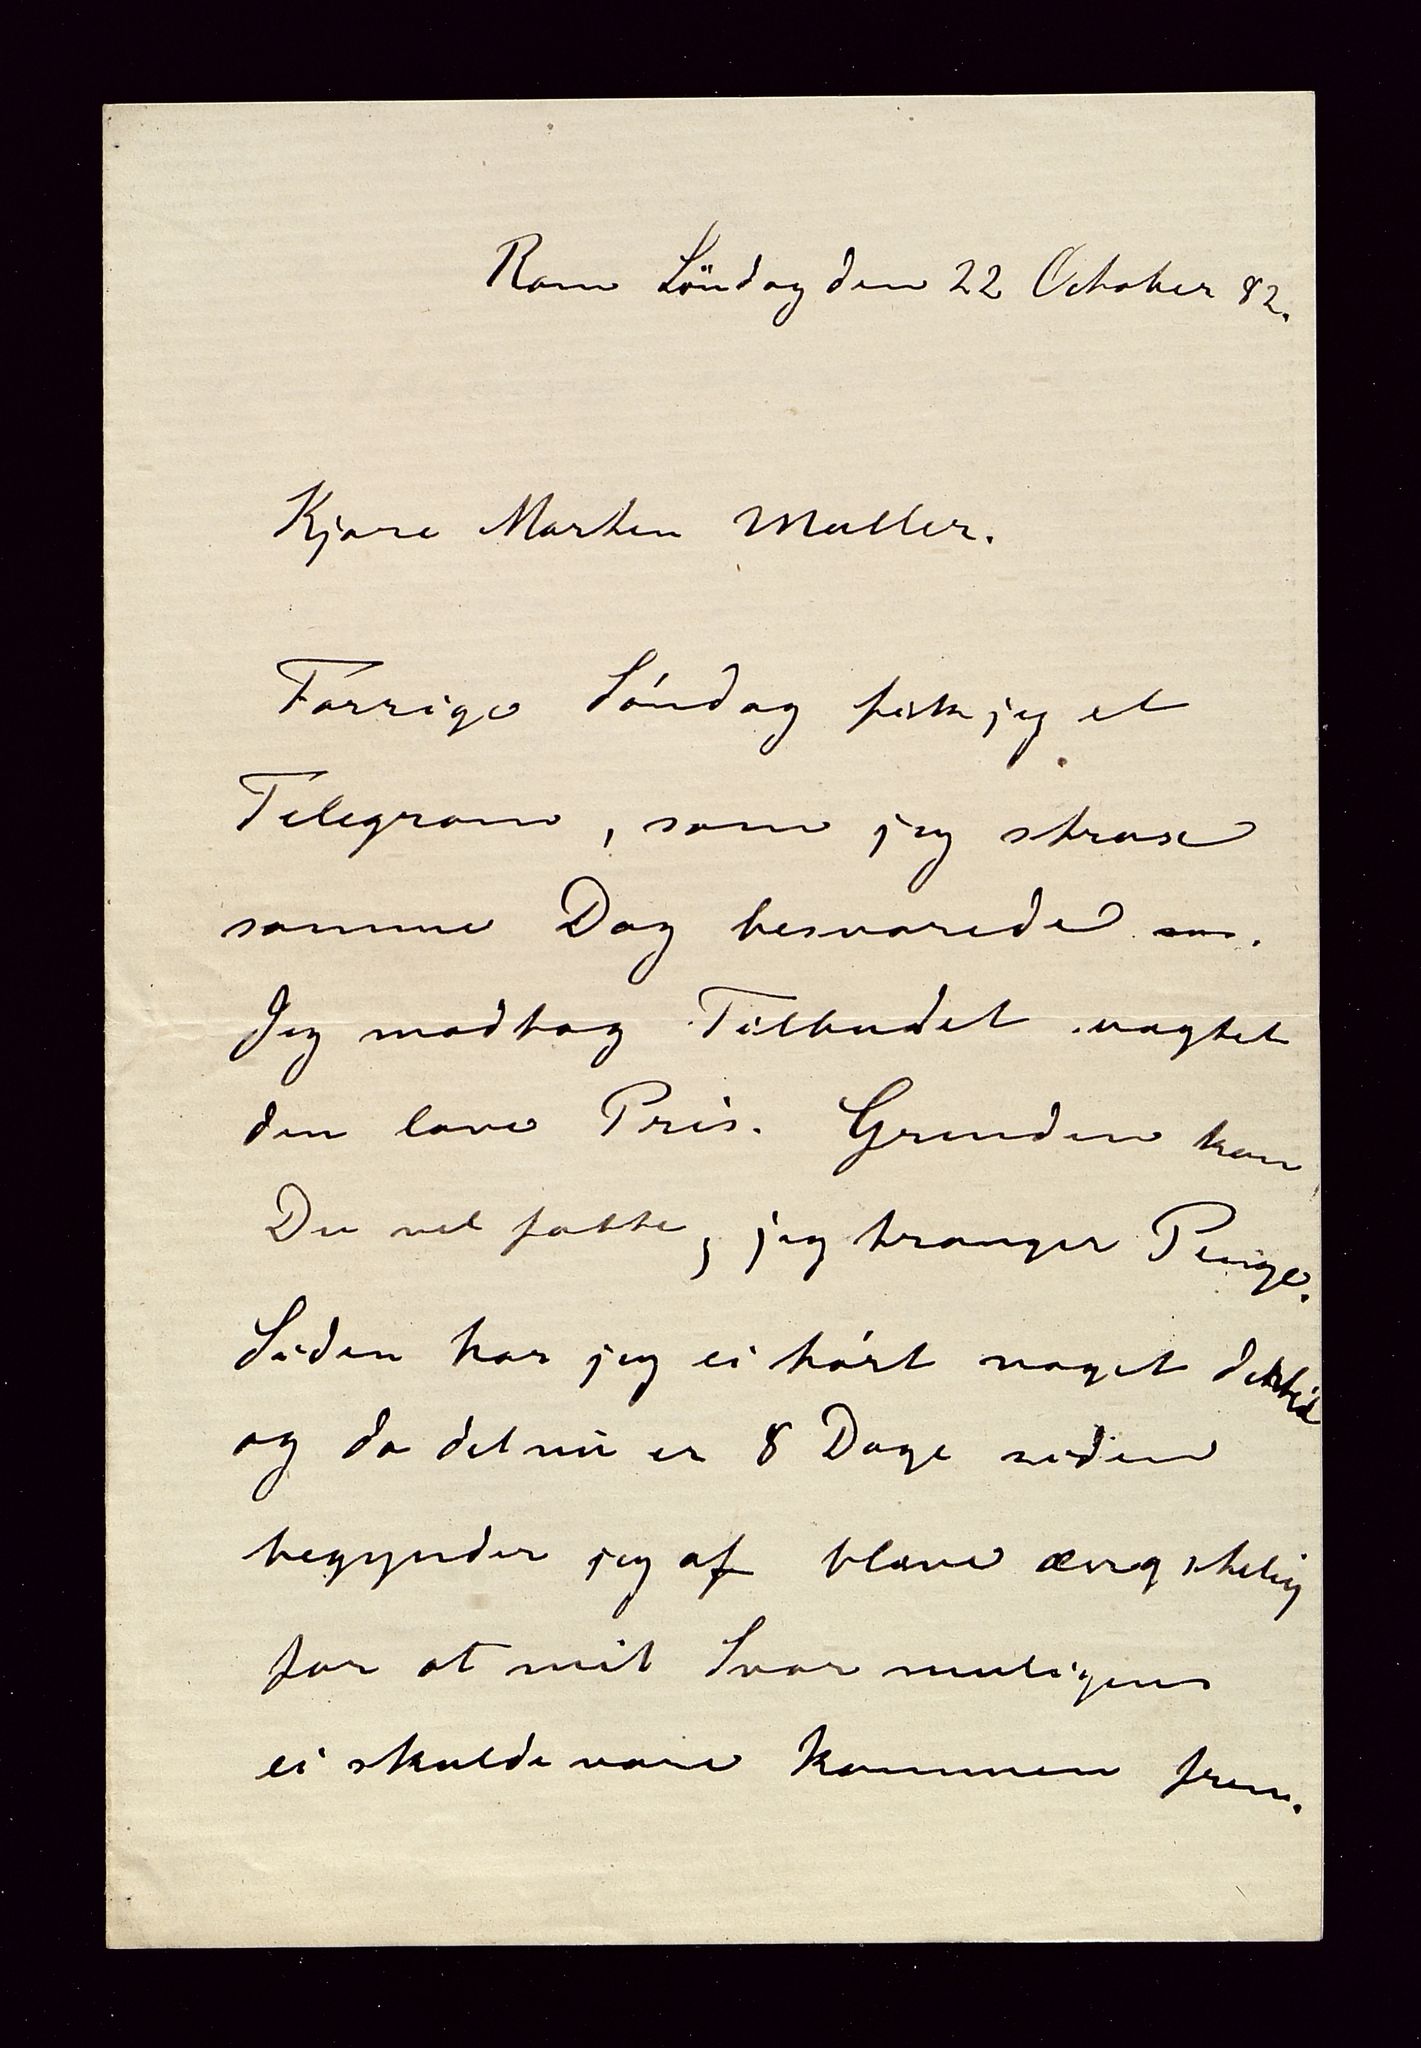 Rom Söndag den 22 October 82.
Kjære Morten Müller.
Forrige Søndag fik jeg et
Telegram, som jeg strax
samme Dag besvarede.
Jeg modtog Tilbudet uagtet
den lave Pris. Grunden kan
Du vel fatte, jeg trænger Penge.
Siden har jeg ei hørt noget dertil
og da det nu er 8 Dage siden
begynder jeg af blive ængstelig
for at mit Svar muligens
ei skulde være kommen frem.